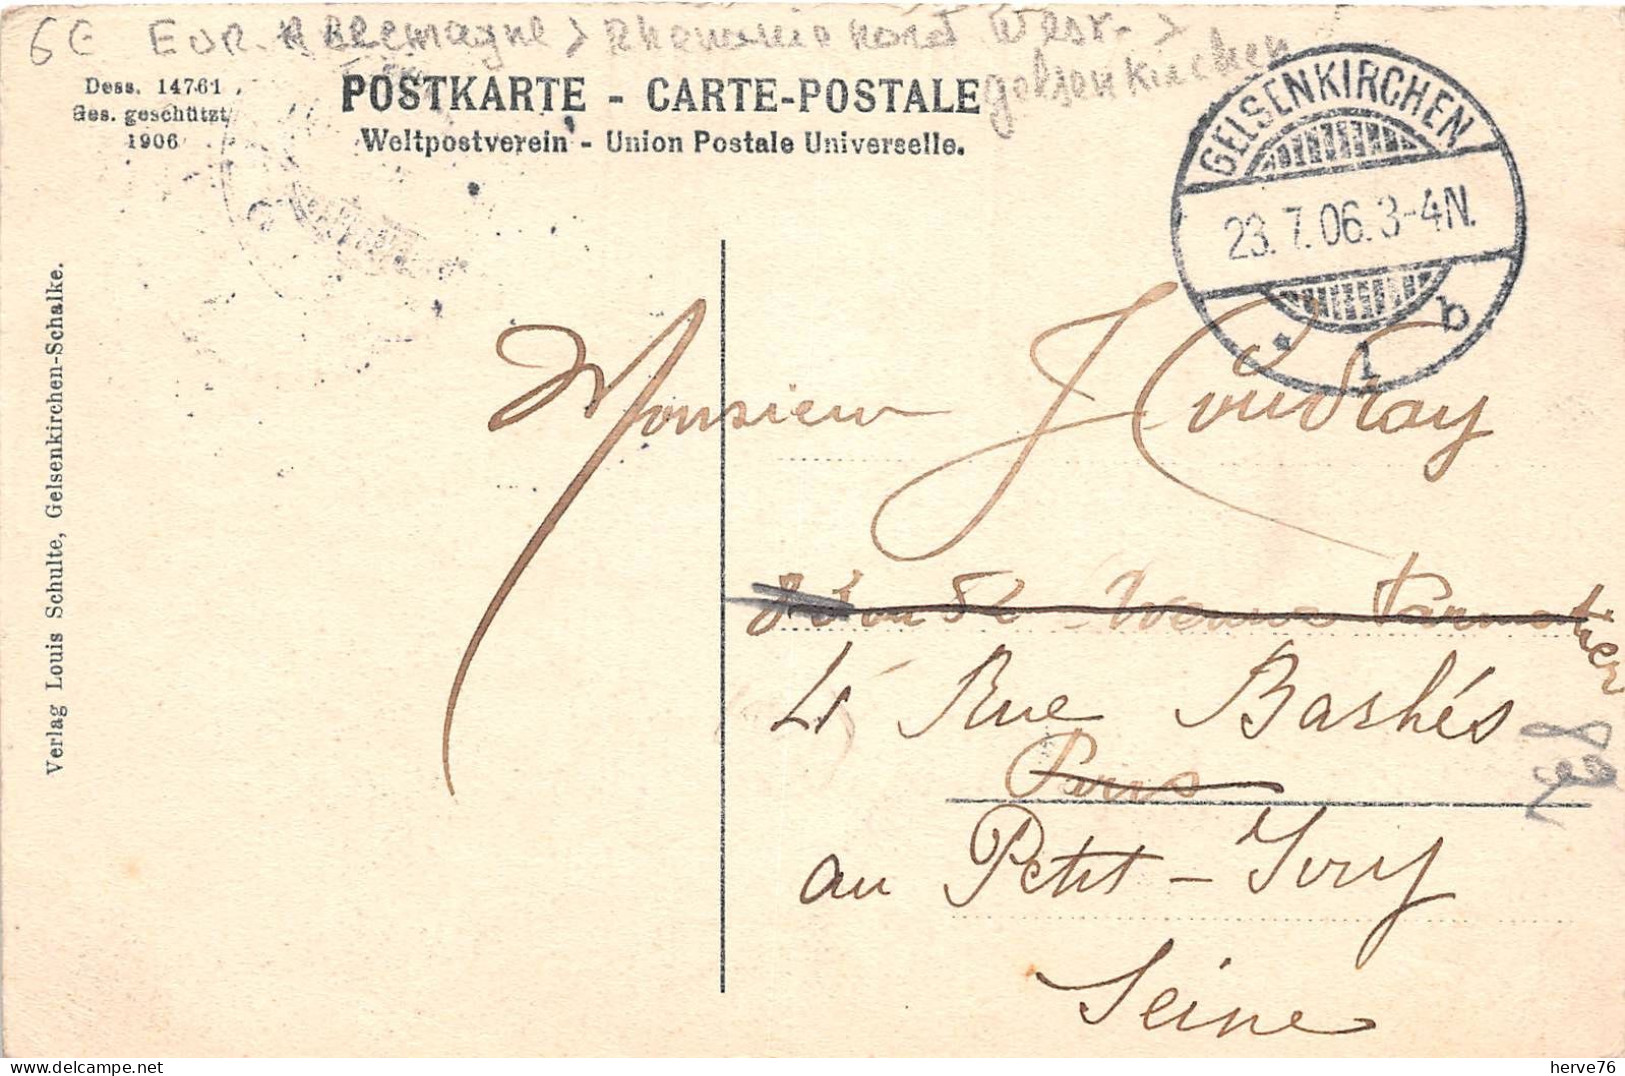 6 € EUR. Allemagne > Rhenanie Nord West. >
gelsenkirchen
Dess. 14761
Ges. geschützt
1906
POSTKARTE - CARTE-POSTALE
Weltpostverein - Union Postale Universelle.
GELSENKIRCHEN
23.7.06.3-4N.
* 1 b
Monsieur J Coudray
52 Avenue Parmentier
4 Rue Barbés
Paris
82
au Petit-Ivry
Seine
Verlag Louis Schulte, Gelsenkirchen-Schalke.
herve76